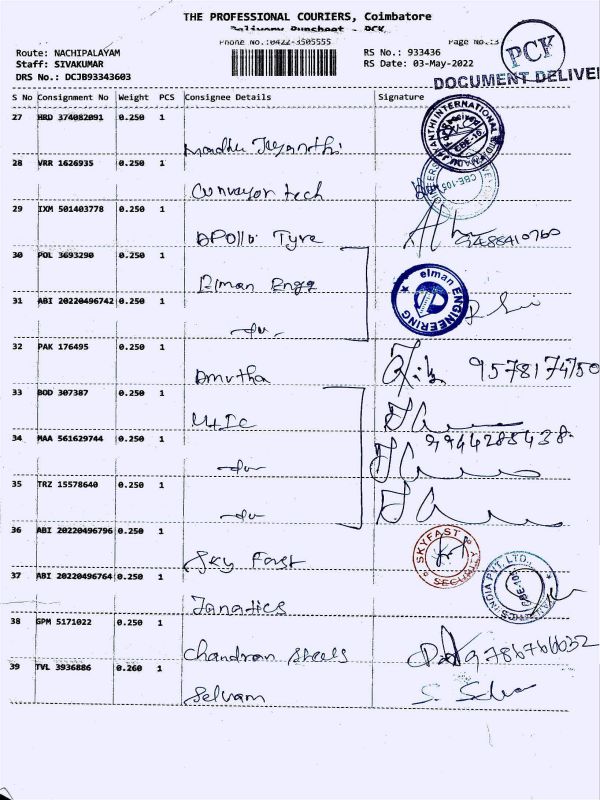 THE PROFESSIONAL COURIERS, Coimbatore
Delivery Runsheet - PCK
Phone No.:0422-3505555 Page No.:3
Route: NACHIPALAYAM RS No.: 933436
Staff: SIVAKUMAR RS Date: 03-May-2022
DRS No.: DCJB93343603
PCK
DOCUMENT DELIVE
S No Consignment No Weight PCS Consignee Details Signature
27 HRD 374082091 0.250 1
Jayanthi
JAYANTHI INTERNATIONAL
28 VRR 1626935 0.250 1
Conveyor tech
CBE-105
29 IXM 501403778 0.250 1
Apollo Tyre
30 POL 3693290 0.250 1
Elman Engg
31 ABI 20220496742 0.250 1
-do-
elman ENGINEERING
32 PAK 176495 0.250 1
Amutha 9578174750
33 BOD 307387 0.250 1
34 MAA 561629744 0.250 1
-do- 9944285438
35 TRZ 15578640 0.250 1
-do-
36 ABI 20220496796 0.250 1
Sky Fast
SKYFAST SECURITY
37 ABI 20220496764 0.250 1
Janatics
INDIA PVT. LTD.
CBE-105
38 GPM 5171022 0.250 1
Chandran Steels
39 TVL 3936886 0.260 1
Selvam S. Selva